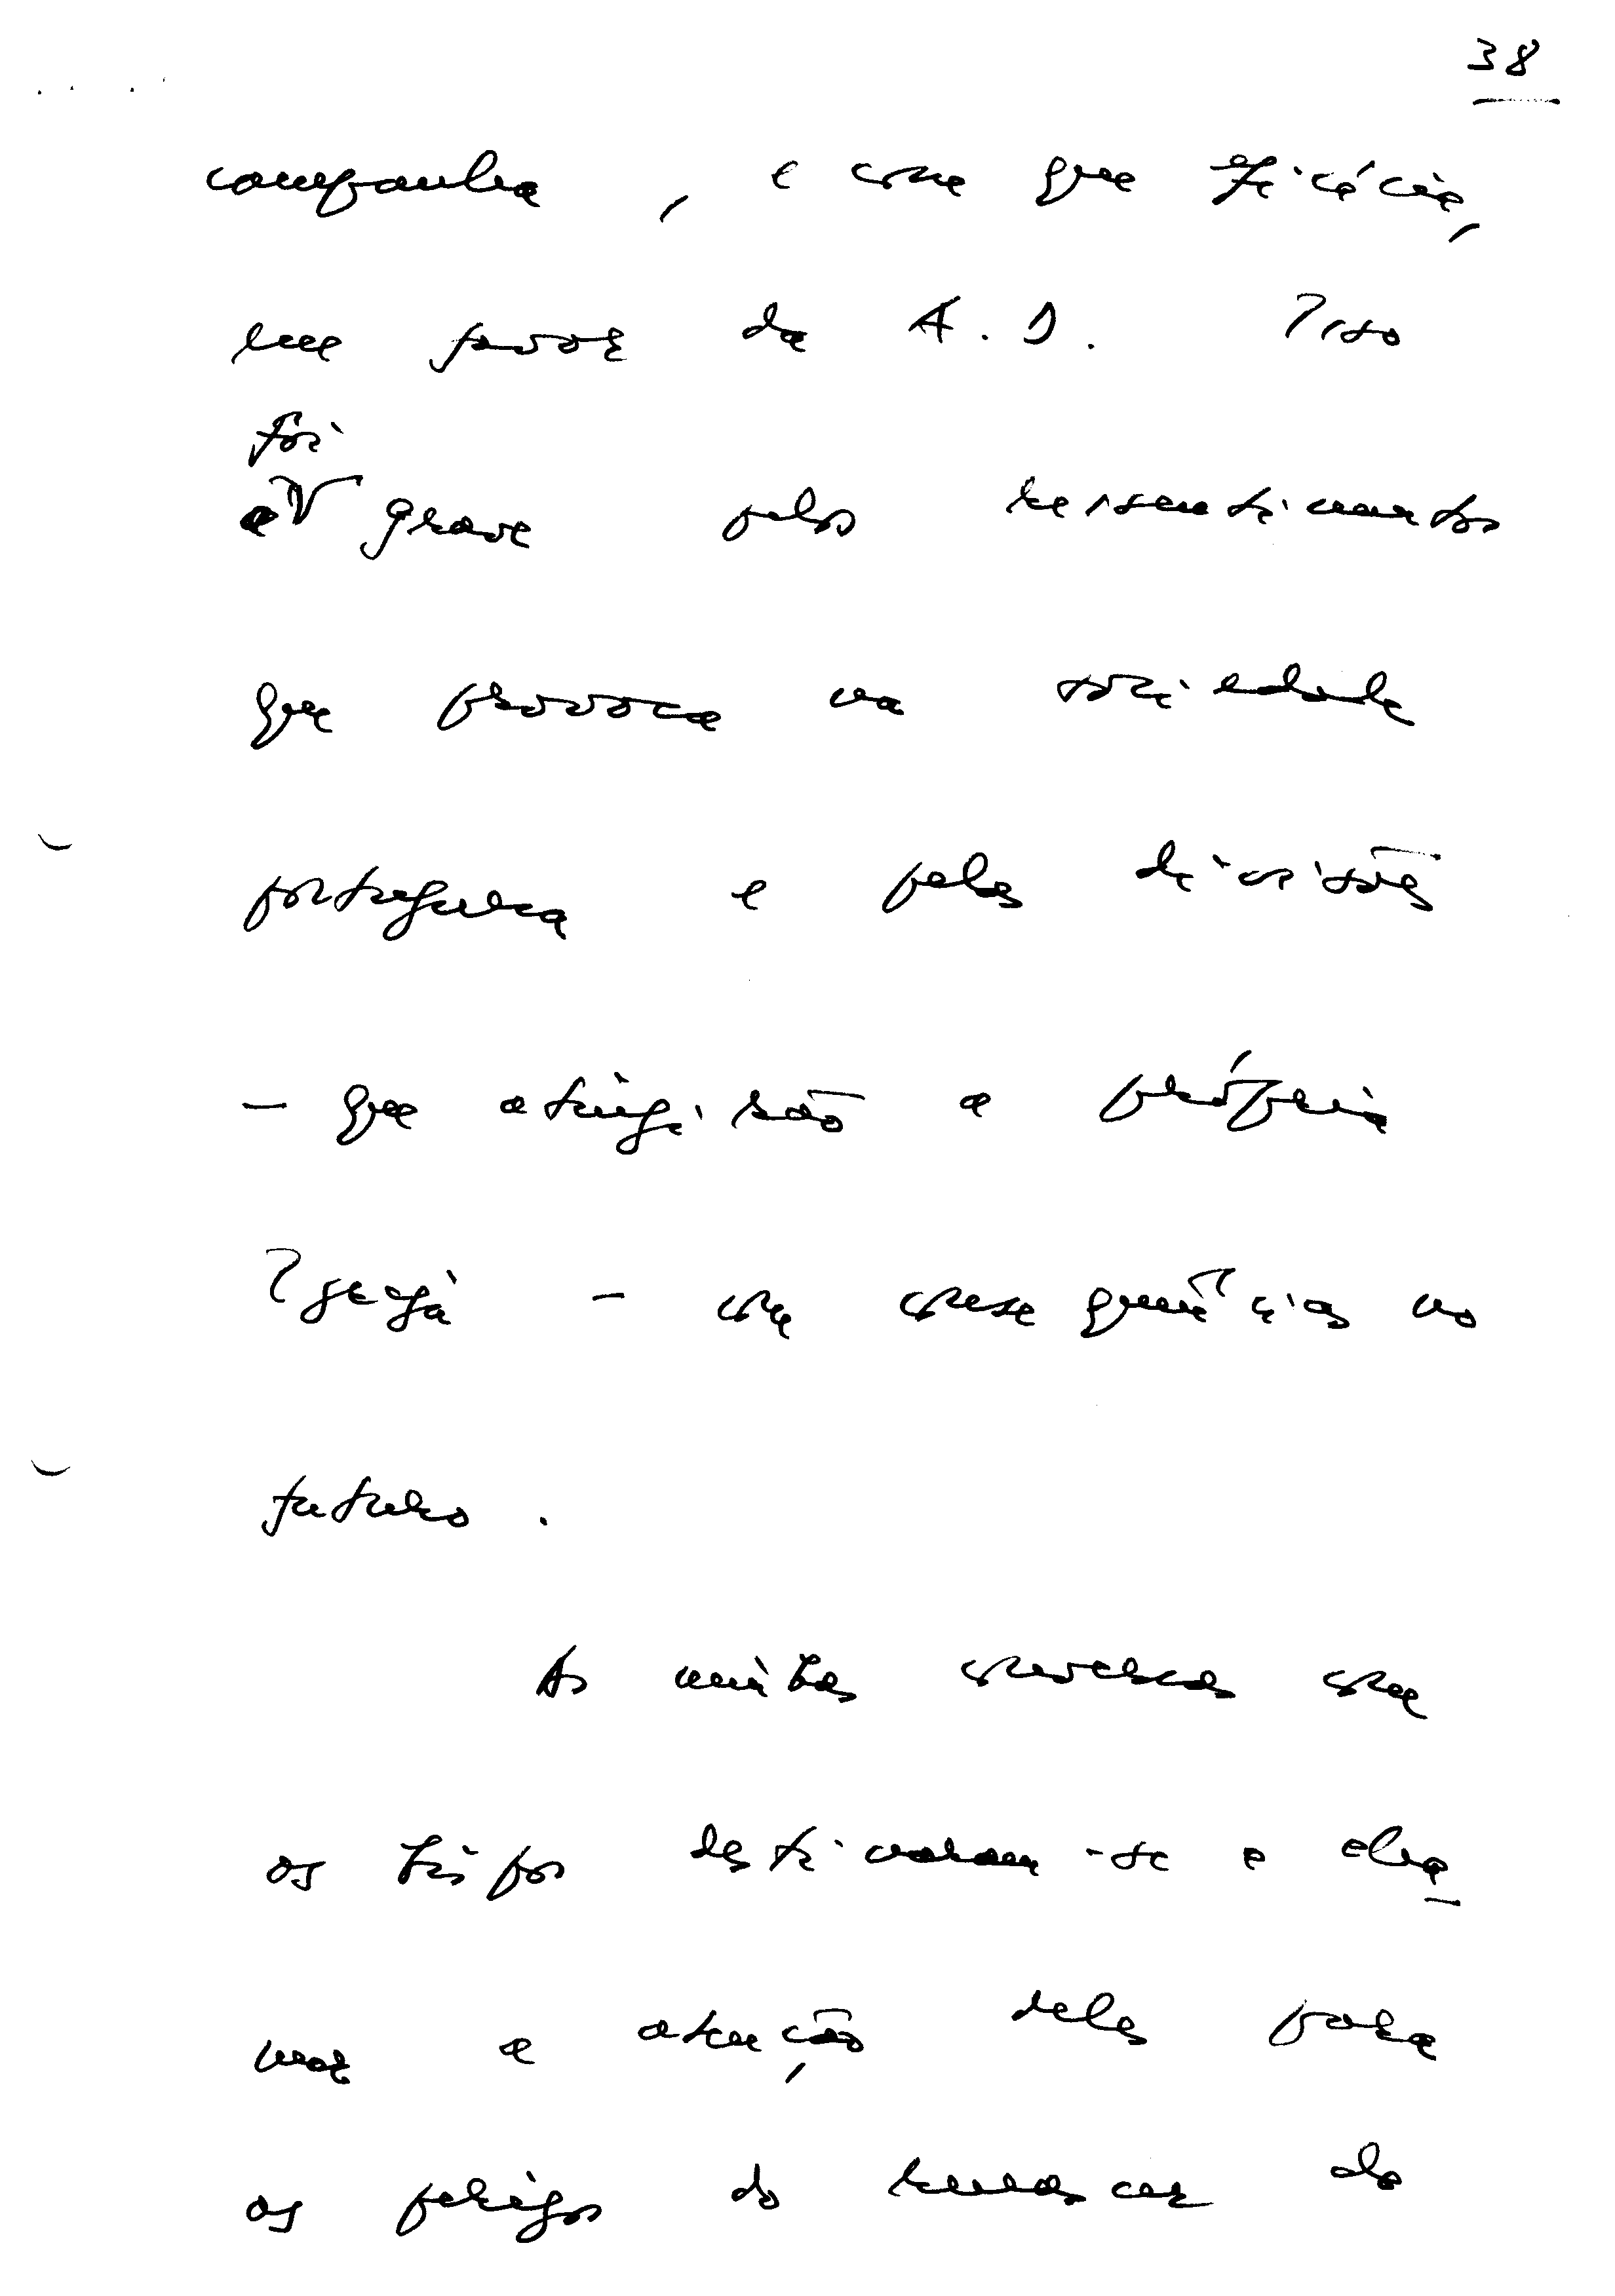 38
campanha, e com que eficácia,
em favor da A.D. Isso
foi
e grave pelos ressentimentos
que provoca na sociedade
portuguesa e pelas divisões
- que atingirão a própria
Igreja - com consequências no
futuro.
As minhas conversas com
os bispos destinavam-se a cha-
mar a atenção deles para
os perigos do renascer do